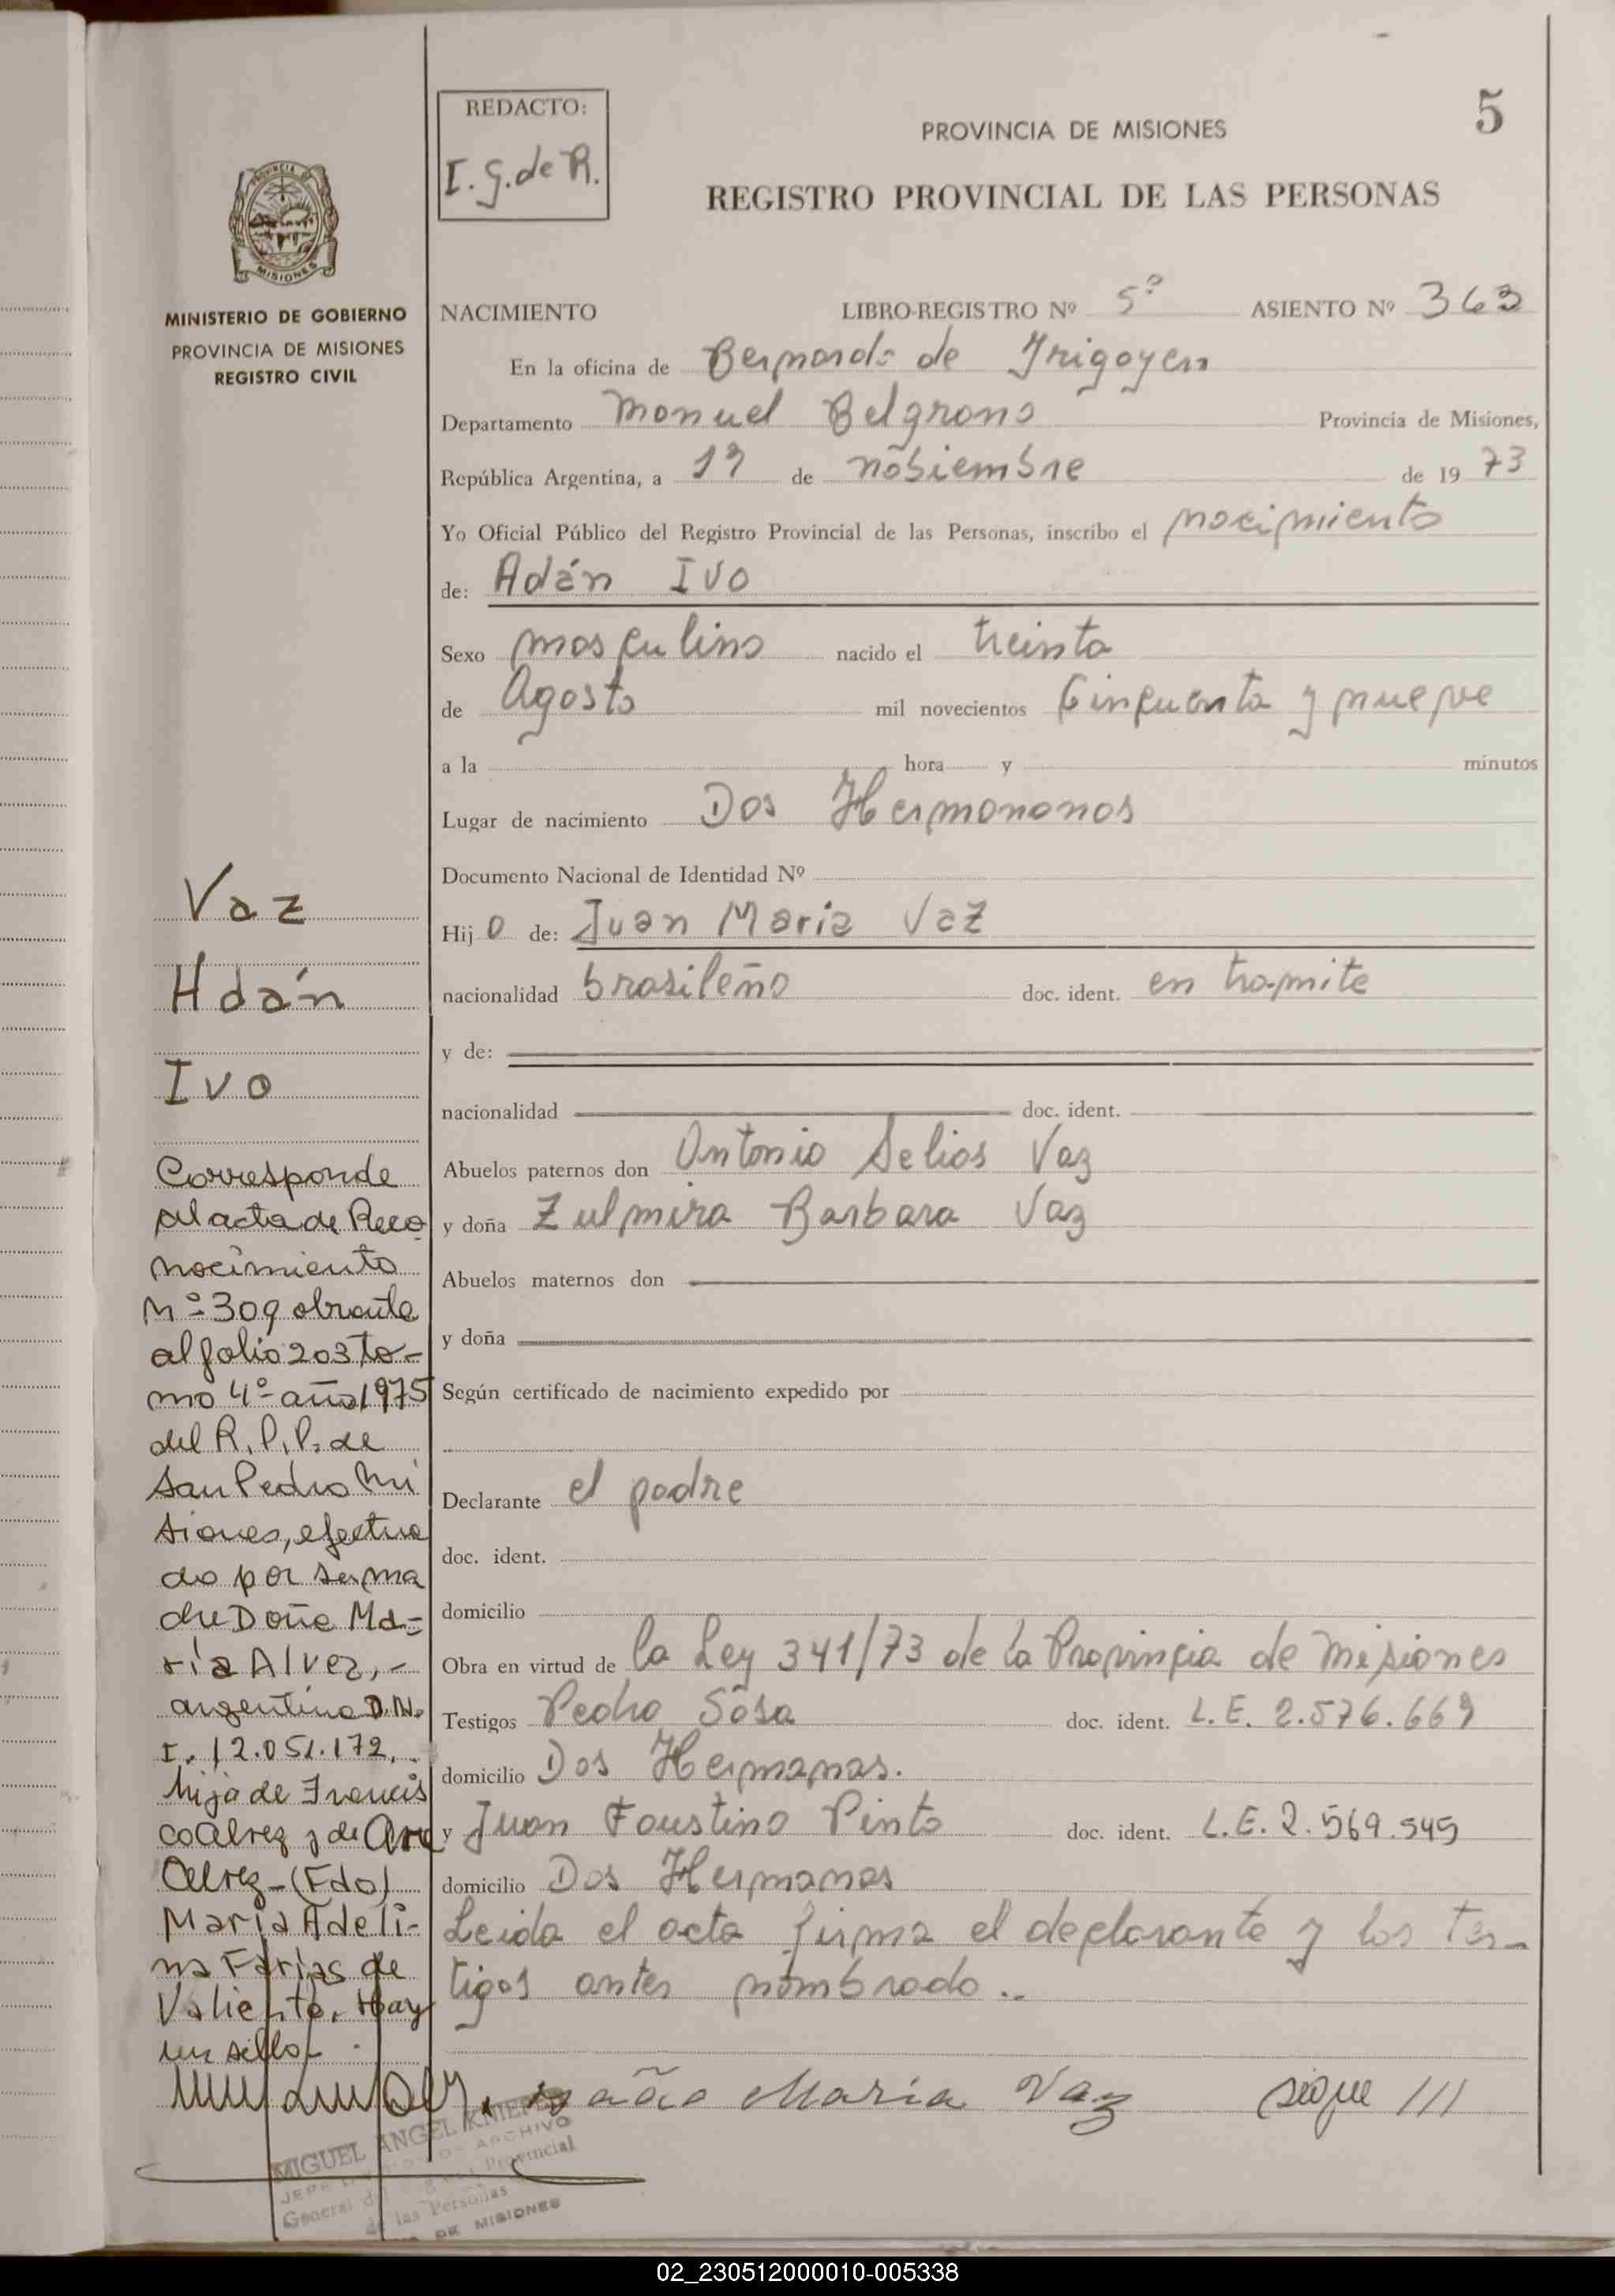 5
REDACTO:
I. G. de R.
PROVINCIA DE MISIONES
REGISTRO PROVINCIAL DE LAS PERSONAS
PROVINCIA DE
MISIONES
MINISTERIO DE GOBIERNO
PROVINCIA DE MISIONES
REGISTRO CIVIL
NACIMIENTO LIBRO-REGISTRO Nº 5º ASIENTO Nº 363
En la oficina de Bernardo de Irigoyen
Departamento Manuel Belgrano Provincia de Misiones,
República Argentina, a 19 de nobiembre de 19 73
Yo Oficial Público del Registro Provincial de las Personas, inscribo el nacimiento
de: Adán Ivo
Sexo masculino nacido el treinta
de Agosto mil novecientos Cincuenta y nueve
a la hora y minutos
Lugar de nacimiento Dos Hermononos
Documento Nacional de Identidad Nº
Hij o de: Juan Maria Vaz
nacionalidad brasileño doc. ident. en tramite
y de:
nacionalidad doc. ident.
Abuelos paternos don Antonio Selios Vaz
y doña Zulmira Barbara Vaz
Abuelos maternos don
y doña
Según certificado de nacimiento expedido por
Declarante el padre
doc. ident.
domicilio
Obra en virtud de la Ley 341/73 de la Provincia de Misiones
Testigos Pedro Sosa doc. ident. L.E. 2.576.669
domicilio Dos Hermanas.
y Juan Faustino Pinto doc. ident. L.E. 2.569.545
domicilio Dos Hermanas
Leida el acta firma el declarante y los tes-
tigos antes nombrado..
João Maria Vaz sigue ///
Vaz
Adán
Ivo
Corresponde
al acta de Reco
nocimiento
Nº 309 obrante
al folio 203 to-
mo 4º año 1975
del R. P. P. de
San Pedro Mi
siones, efectua
do por su ma
dre Doña Ma-
ría Alvez,-
argentina D.N.
I. 12.051.172,-
hija de Francis
co Alvez y de Ana
Alvez-(Fdo)
Maria Adeli-
na Farias de
Valiente. Hay
un sello.
MIGUEL ANGEL
JEFE ARCHIVO
General del Provincial
de las Personas
DE MISIONES
02_230512000010-005338